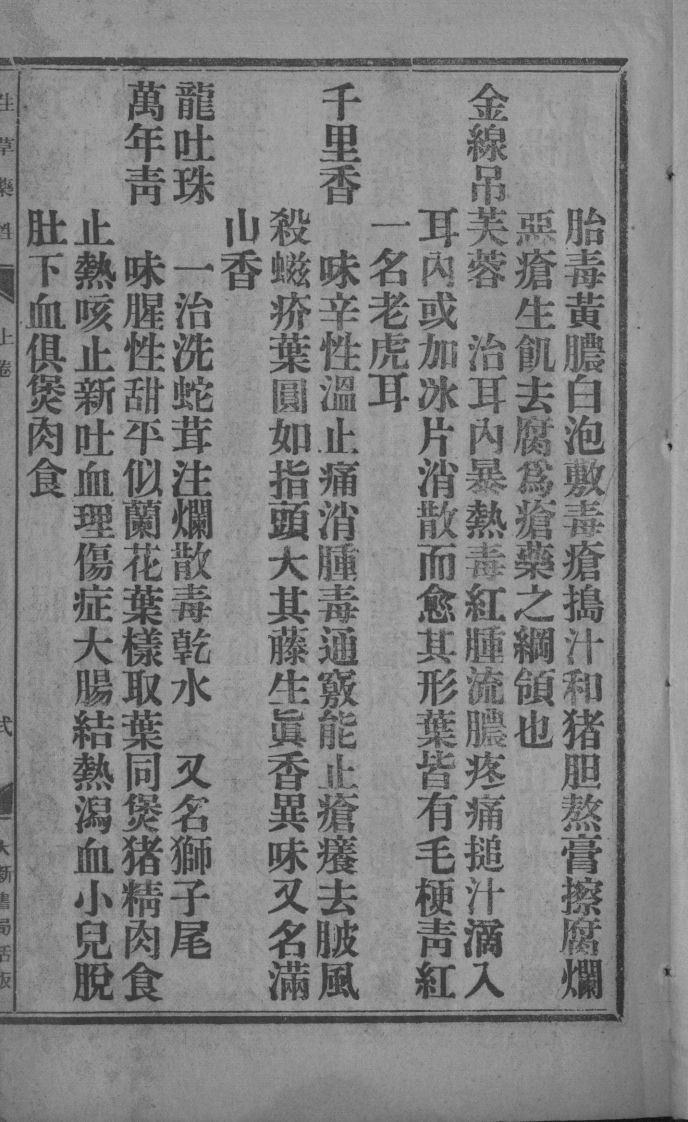 胎毒黃膿白泡敷毒瘡搗汁和猪胆熬膏擦腐爛
惡瘡生飢去腐爲瘡藥之綱領也
金線吊芙蓉　治耳內暴熱毒紅腫流膿疼痛搥汁滴入
耳內或加冰片消散而愈其形葉皆有毛梗靑紅
一名老虎耳
千里香　味辛性溫止痛消腫毒通竅能止瘡癢去皴風
殺蟣疥葉圓如指頭大其藤生眞香異味又名滿
山香
龍吐珠　一治洗蛇茸注爛散毒乾水　又名獅子尾
萬年靑　味腥性甜平似蘭花葉樣取葉同煲猪精肉食
止熱咳止新吐血理傷症大腸結熱瀉血小兒脫
肚下血俱煲肉食
生草藥性
上卷
弍
大新書局活版